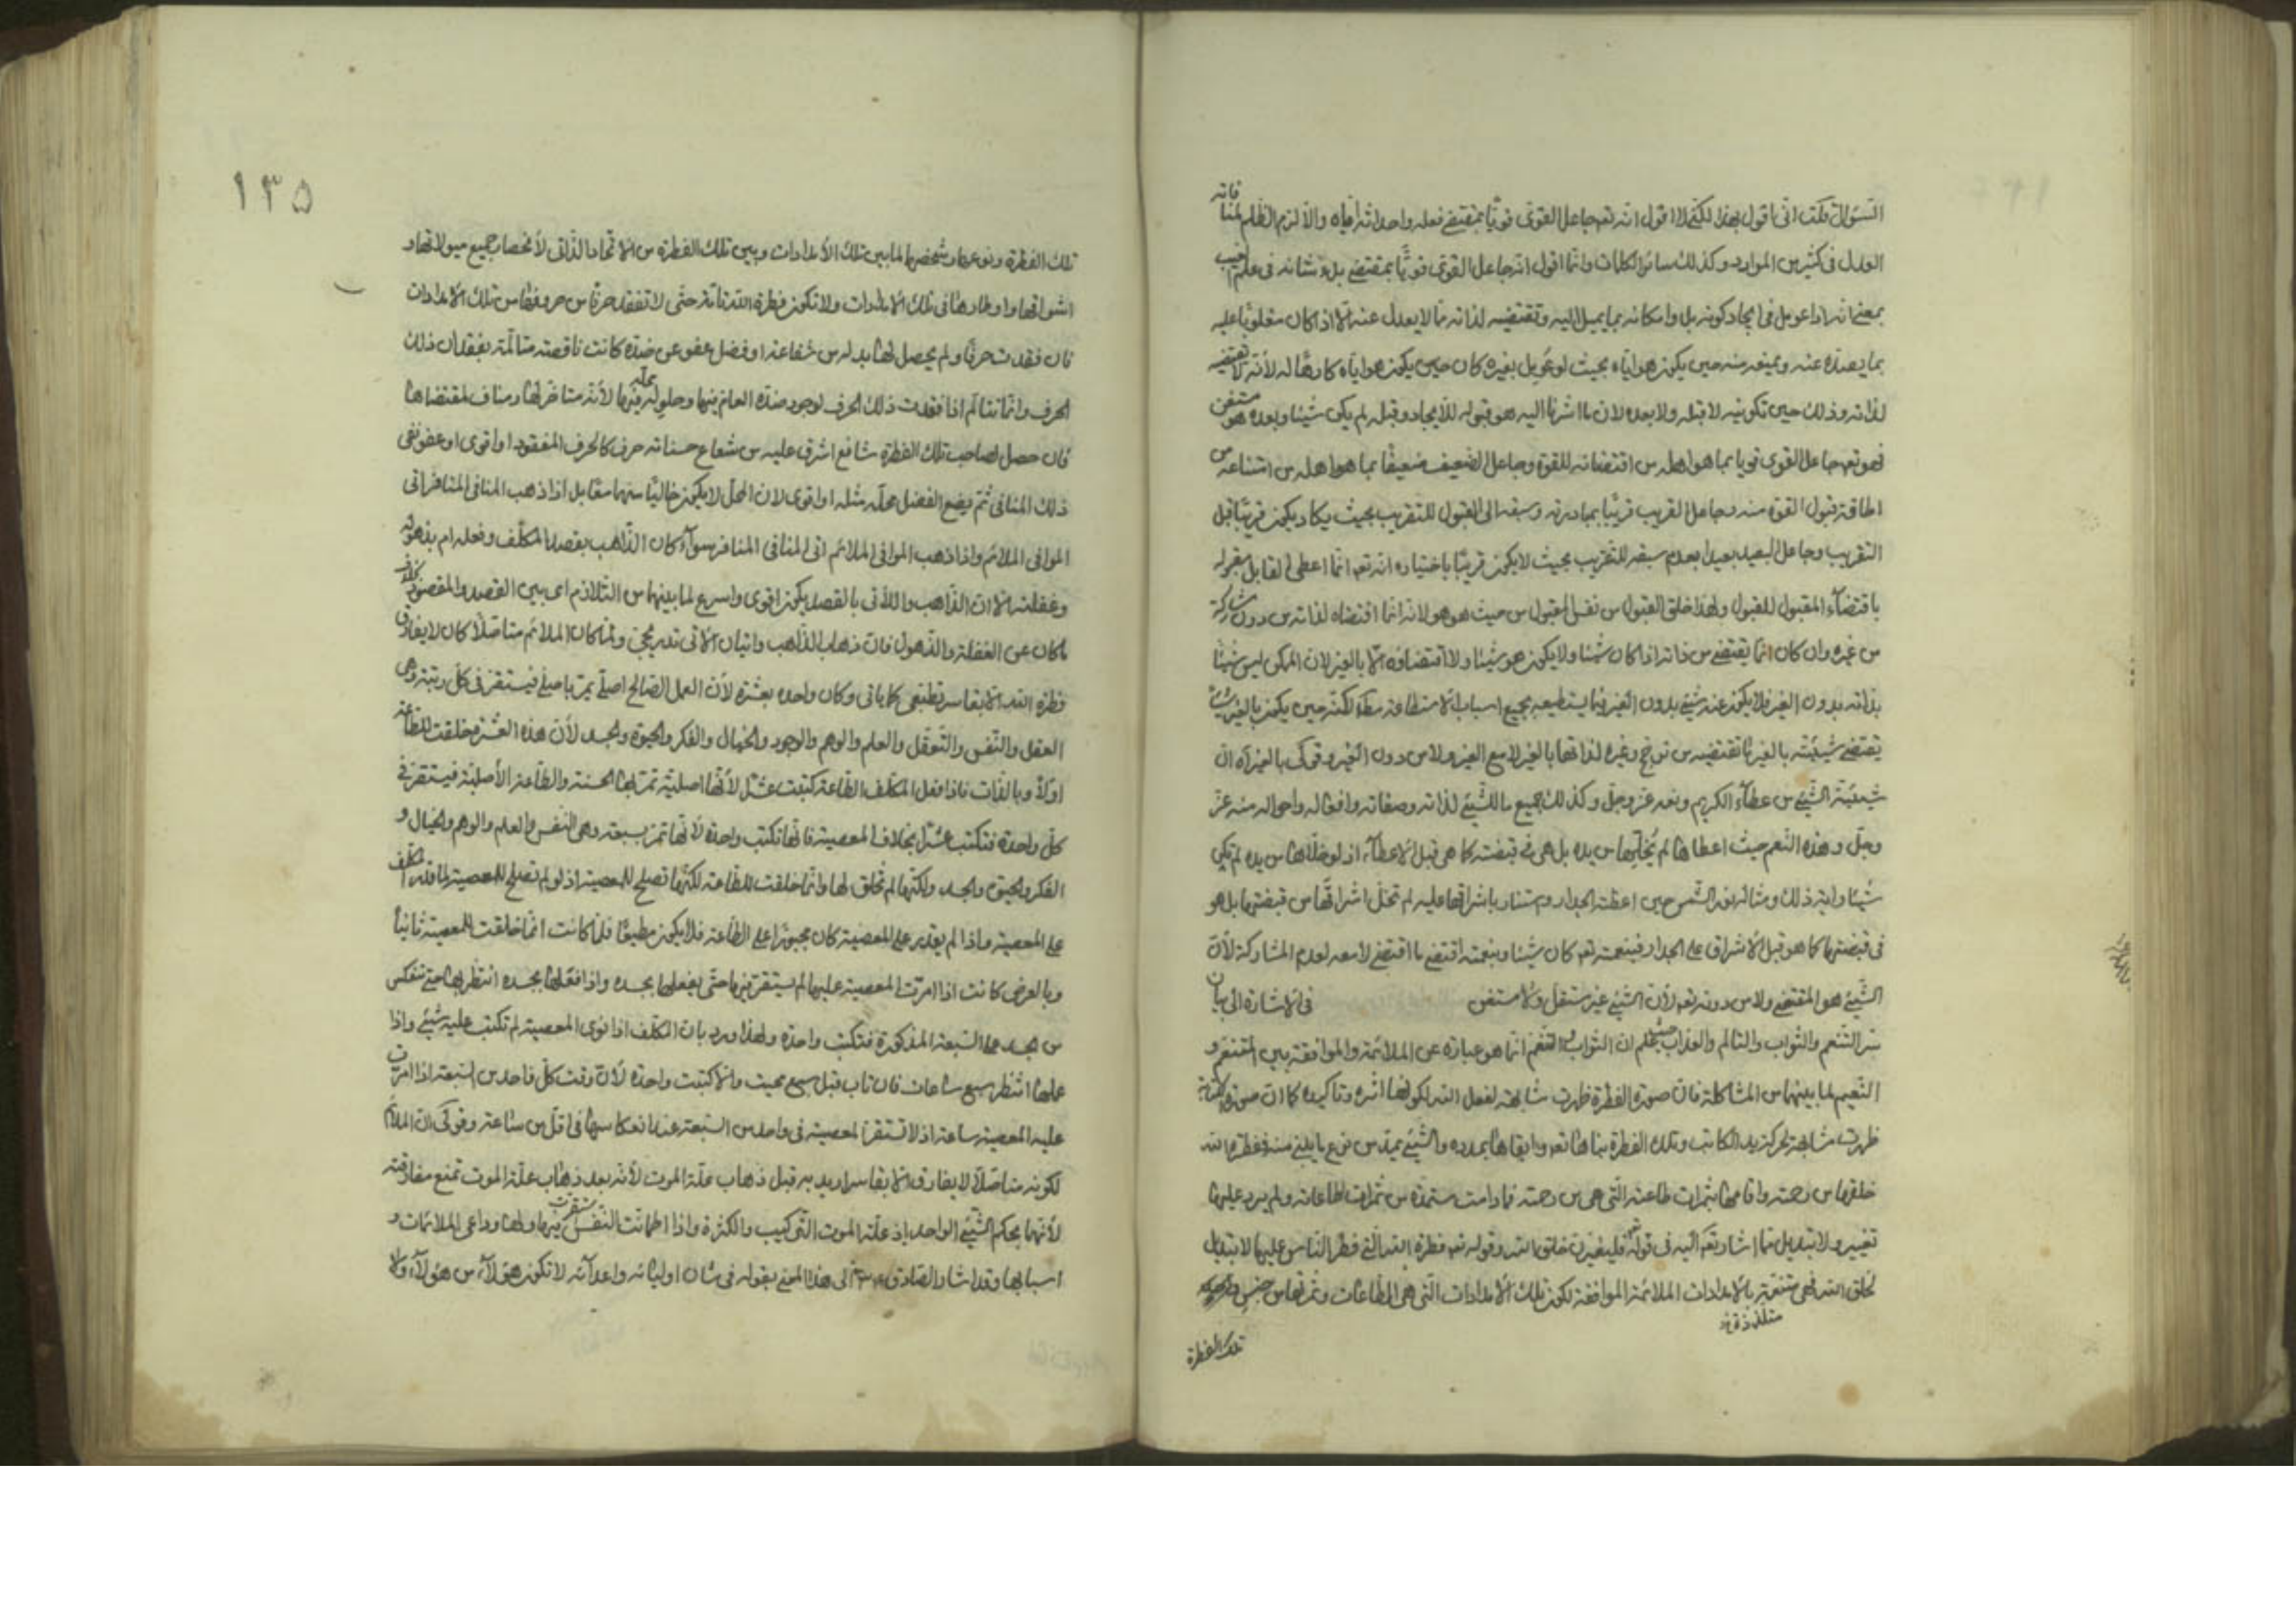 السؤال قلت انى اقول بهذا لكنى لا اقول انه تعالى جاعل القوى قويا بمقتضى فعله واحداثه اياه والا لزم الظلم لمنا فاته
العدل فى كثير من الموارد وكذلك سائر الكلمات وانما اقول انه جاعل القوى قويا بمقتضى شانه فى علم الغيب
بمعنى انه اذا عومل فى ايجاد كونه بل وامكانه بما يميل اليه وتقتضيه لذاته مما لا يعدل عنه الا اذا كان مغلوبا عليه
بما يصده عنه ويمنعه منه حين يكون هو اياه بحيث لو عومل بغيره كان حين يكون هو اياه كارها له لانه لا تقتضيه
لذاته وذلك حين تكوينه لا قبله ولا بعده لان ما اشرنا اليه هو قبوله للايجاد وقبله لم يكن شيئا وبعده هو مستغن
فهو تعالى جاعل القوى قويا بما هو اهله من اقتضائه للقوة وجاعل الضعيف ضعيفا بما هو اهله من امتناعه من
اطاقة قبول القوة منه وجاعل القريب قريبا بمبادرته وسبقه الى القبول للتقريب بحيث يكاد يكون قريبا قبل
التقريب وجاعل البعيد بعيدا بعدم سبقه للتقريب بحيث لا يكون قريبا باختياره انه تعالى انما اعطى القابل مقبوله
باقتضاء المقبول للقبول ولهذا خلق القبول من نفس المقبول من حيث هو هو لانه انما اقتضاه لذاته من دون مشاركة
من غيره وان كان انما يقتضى من ذاته اذا كان شيئا ولا يكون هو شيئا ولا اقتضاؤه الا بالغير لان الممكن ليس شيئا
بذاته بدون الغير فلا يكون عنه شيئ بدون الغير فيما يستطيعه بجميع اسباب الاستطاعة مطلقا لكنه حين يكون بالغير شيئا
تقتضى شيئيته بالغير ما تقتضيه من نوعى وغيره لذاتها بالغير لا مع الغير ولا من دون الغير وقولى بالغير اه ان
شيئية الشيئ من عطاء الكريم ونعمه عز وجل وكذلك جميع ما للشيئ لذاته وصفاته وافعاله واحواله منه عز
وجل وهذه النعم حيث اعطاها لم يخلها من يده بل هى فى قبضته كما هى قبل الاعطاء اذ لو خلاها من يده لم تكن
شيئا وآية ذلك ومثاله نور الشمس حين اعطته الجدار واستنار باشراقها عليه لم تخل اشراقها من قبضتها بل هو
فى قبضتها كما هو قبل الاشراق على الجدار فبنعمته تعالى كان شيئا وبنعمته اقتضى ما اقتضى لا معه لعدم المشاركة لان
الشيئ هو المقتضى ولا من دونه تعالى لان الشيئ غير مستقل ولا مستغن فى الاشارة الى بيان
سر التنعم والثواب والتألم والعذاب اعلم ان الثواب والتنعم انما هو عبارة عن الملائمة والموافقة بين المتنعم و
النعيم لما بينهما من المشاكلة فان صورة الفطرة ظهرت مشابهة لفعل الله لكونها اثره وتأكيده كما ان صورة الكتابة
ظهرت مشابهة لحركة يد الكاتب وتلك الفطرة بناها تعالى وابقاها بمدده والشيئ يمد من نوع ما بنى منه ففطرة الله
خلقها من رحمته واقامها بثمرات طاعته التى هى من رحمته فما دامت مستمدة من ثمرات طاعاته ولم يرد عليها
تغيير ولا تبديل مما اشار تعالى اليه فى قوله فليغيرن خلق الله وقوله تعالى فطرة الله التى فطر الناس عليها لا تبديل
لخلق الله فهى متنعمة بالامدادات الملائمة الموافقة لكون تلك الامدادات التى هى الطاعات وثمرتها من جنس
متلذذة
تلك الفطرة
١٣٥
تلك الفطرة ونوعها وشخصها لما بين تلك الامدادات وبين تلك الفطرة من الاتحاد الذاتى لانحصار جميع ميولاتها و
اشواقها واوطارها فى تلك الامدادات ولا تكون فطرة الله تامة حتى لا تفقد حرفا من حروفها من تلك الامدادات
فان فقدت حرفا ولم يحصل لها بدله من شفاعة او فضل عفو عن ضده كانت ناقصة متألمة بفقدان ذلك
الحرف وانما تتألم اذا فقدت ذلك الحرف لوجود ضده العام فيها وحلوله محله فيها لانه منافر لها ومناف لمقتضاها
فان حصل لصاحب تلك الفطرة شافع اشرق عليه من شعاع حسناته حرف كالحرف المفقود او اقوى او عفو نفى
ذلك المنافى ثم يضع الفضل محله مثله او اقوى لان المحل لا يكون خاليا منهما معا بل اذا ذهب المنافى المنافر اتى
الموافى الملائم واذا ذهب الموافى الملائم اتى المنافى المنافر سواء كان الذاهب بقصد المكلف وفعله ام بذهوله
وغفلته الا ان الذاهب والآتى بالقصد يكون اقوى واسرع لما بينهما من التلازم اى بين القصد والمقصود بخلاف
ما كان عن الغفلة والذهول فان ذهاب الذاهب واتيان الآتى تدريجى ولما كان الملائم متأصلا كان لا يفارق
فطرة الله الا بقاسر تطبعى كما ياتى وكان واحده بعشرة لان العمل الصالح اصلى يمر باصلى فيستقر فى كل رتبة وهى
العقل والنفس والتعقل والعلم والوهم والوجود والخيال والفكر والحيوة والجسد لان هذه العشرة خلقت للطاعة
اولا وبالذات فاذا فعل المكلف الطاعة كتبت عشرا لانها اصلية تمر بها الحسنة والطاعة الاصلية فيستقر فى
كل واحدة فتكتب عشرا بخلاف المعصية فانها تكتب واحدة لانها تمر بسبعة وهى النفس والعلم والوهم والخيال و
الفكر والحيوة والجسد ولكنها لم تخلق لها وانما خلقت للطاعة لكنها تصلح للمعصية اذ لو لم تصلح للمعصية لما قدر المكلف
على المعصية واذا لم يقدر على المعصية كان مجبورا على الطاعة فلا يكون مطيعا فلما كانت انما خلقت للمعصية ثانيا
وبالعرض كانت اذا مرت المعصية عليها لم يستقر فيها حتى يفعلها بجسده واذا فعلها بجسده انتظر بها حتى تنعكس
من الجسد على السبعة المذكورة فتكتب واحدة ولهذا ورد بان المكلف اذا نوى المعصية لم تكتب عليه شيئ واذا
عملها انتظر سبع ساعات فان تاب قبل سبع محيت والا كتبت واحدة لان وقت كل واحد من السبعة اذا مرت
عليه المعصية ساعة اذ لا تستقر المعصية فى واحد من السبعة عند انعكاسها فى اقل من ساعة وقولى ان الملائم
لكونه متأصلا لا يفارق الا بقاسر اريد به قبل ذهاب علة الموت لانه بعد ذهاب علة الموت تمنع مفارقته
لانهما بحكم الشيئ الواحد اذ علة الموت التركيب والكثرة واذا اطمأنت النفس استقرت فيها ولها دواعى الملائمات و
اسبابها وقد اشار الصادق عليه السلام الى هذا المعنى بقوله فى شان اوليائه واعدائه لا تكون هؤلاء من هؤلاء ولا